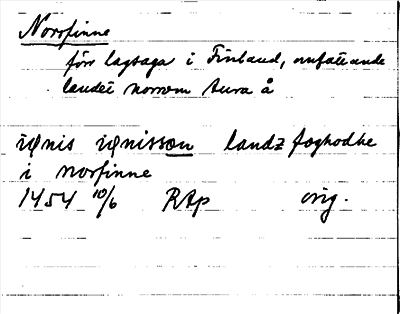 Norrfinne
förr lagsaga i Finland, omfattande
landet norrom Aura å
iønis iønisson landz foghodhe
i norfinne
1454 10/6 RAp orig.